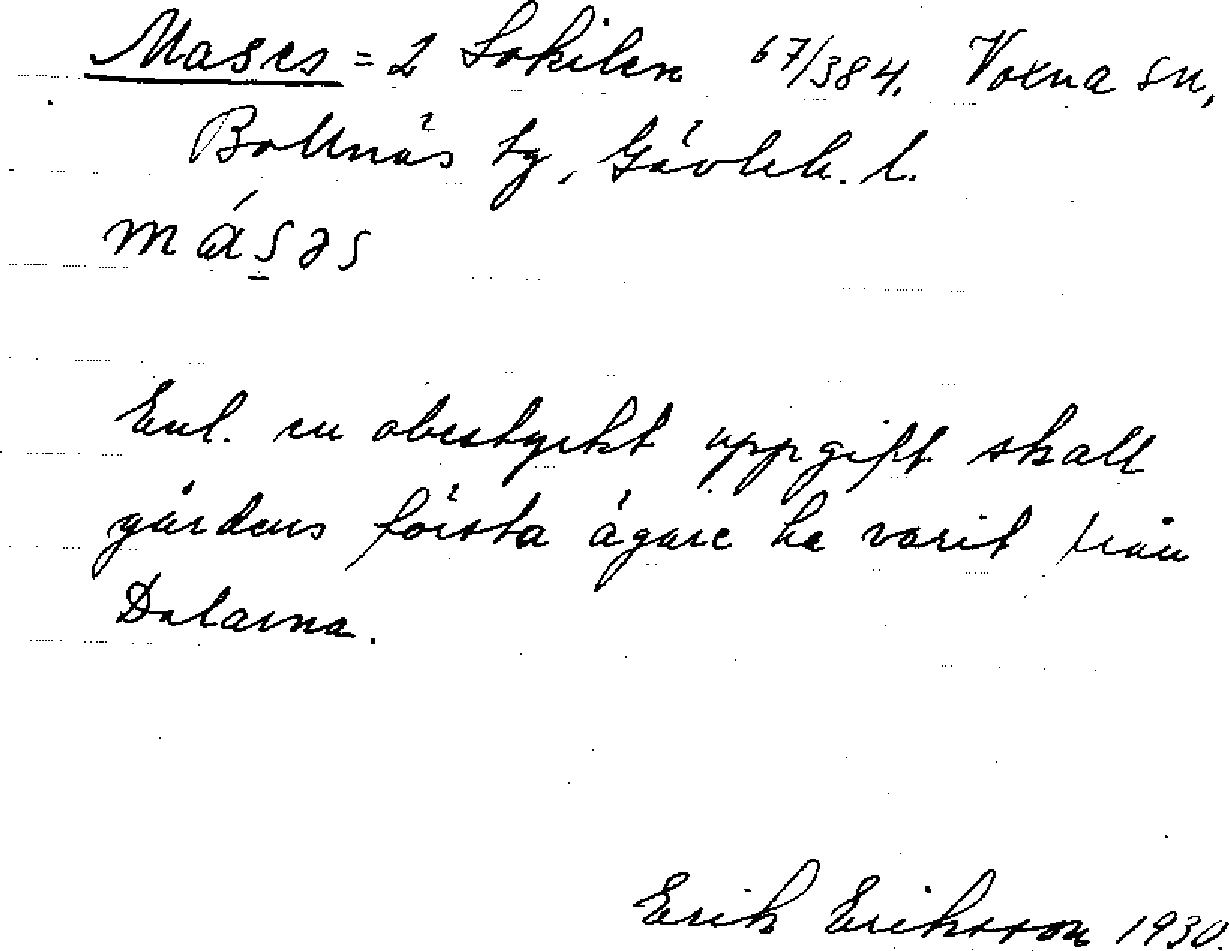 Mases = 2 Lokilen 67/384. Voxna sn,
Bollnäs tg, Gävleb. l.
má̱səs
Enl. en obestyrkt uppgift skall
gårdens första ägare ha varit från
Dalarna.
Erik Eriksson 1930.